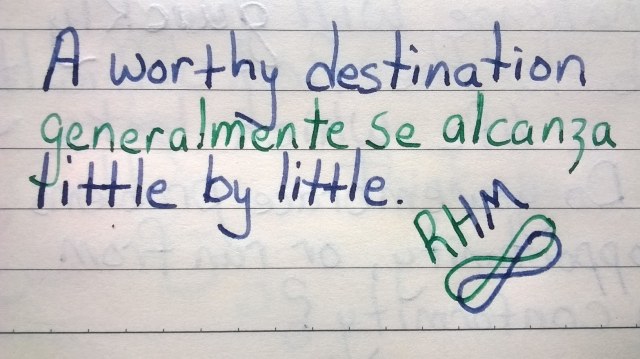 A worthy destination
generalmente se alcanza
little by little.
RHM